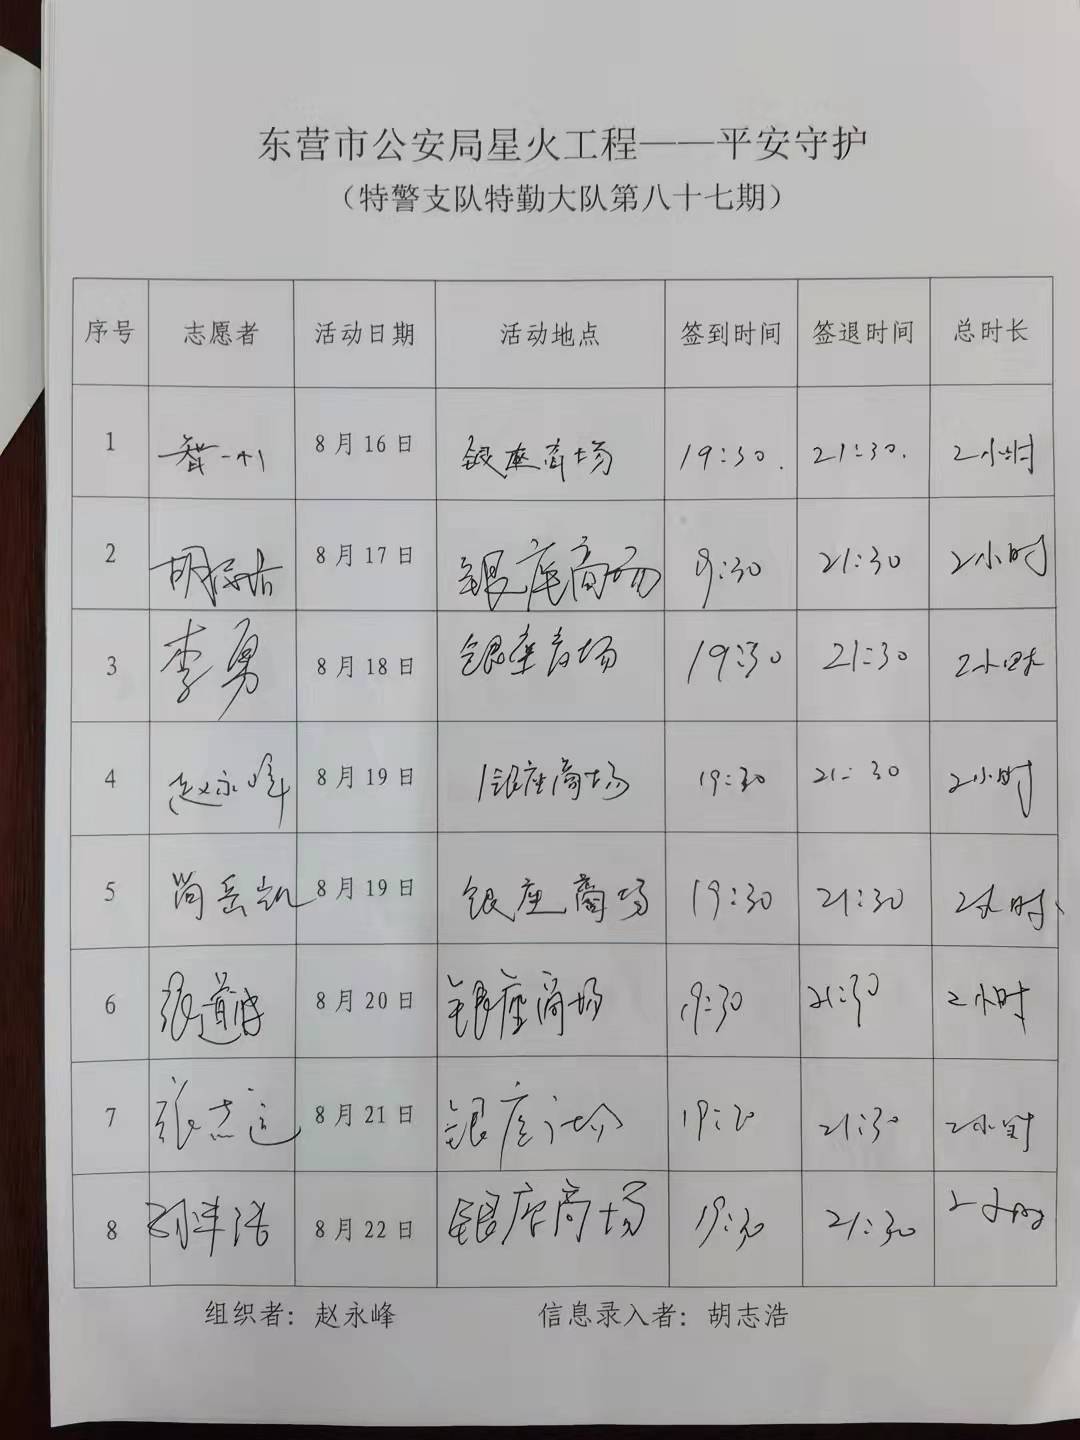 东营市公安局星火工程——平安守护
（特警支队特勤大队第八十七期）
序号 志愿者 活动日期 活动地点 签到时间 签退时间 总时长
1 8月16日 银座商场 19:30. 21:30. 2小时
2 8月17日 银座商场 9:30 21:30 2小时
3 李勇 8月18日 银座商场 19:30 21:30 2小时
4 赵永峰 8月19日 银座商场 19:30 21:30 2小时
5 尚岳凯 8月19日 银座商场 19:30 21:30 2小时
6 8月20日 银座商场 19:30 21:30 2小时
7 张志远 8月21日 银座 21:30 2小时
8 8月22日 银座商场 19:30 21:30 2小时
组织者：赵永峰 信息录入者：胡志浩